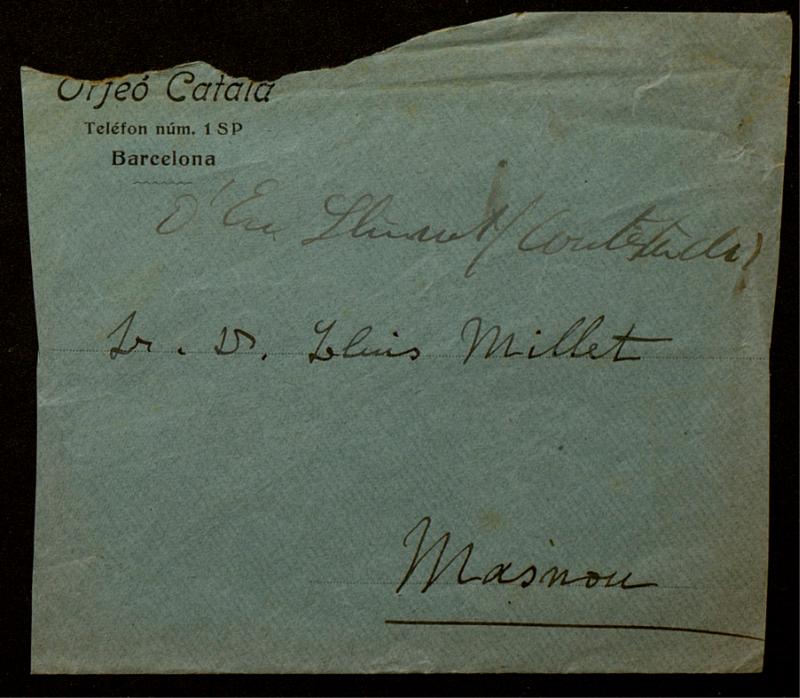 Orfeó Català
Teléfon núm. 1 SP
Barcelona
D'En Llimona / Contestada
Sr. D. Lluis Millet
Masnou